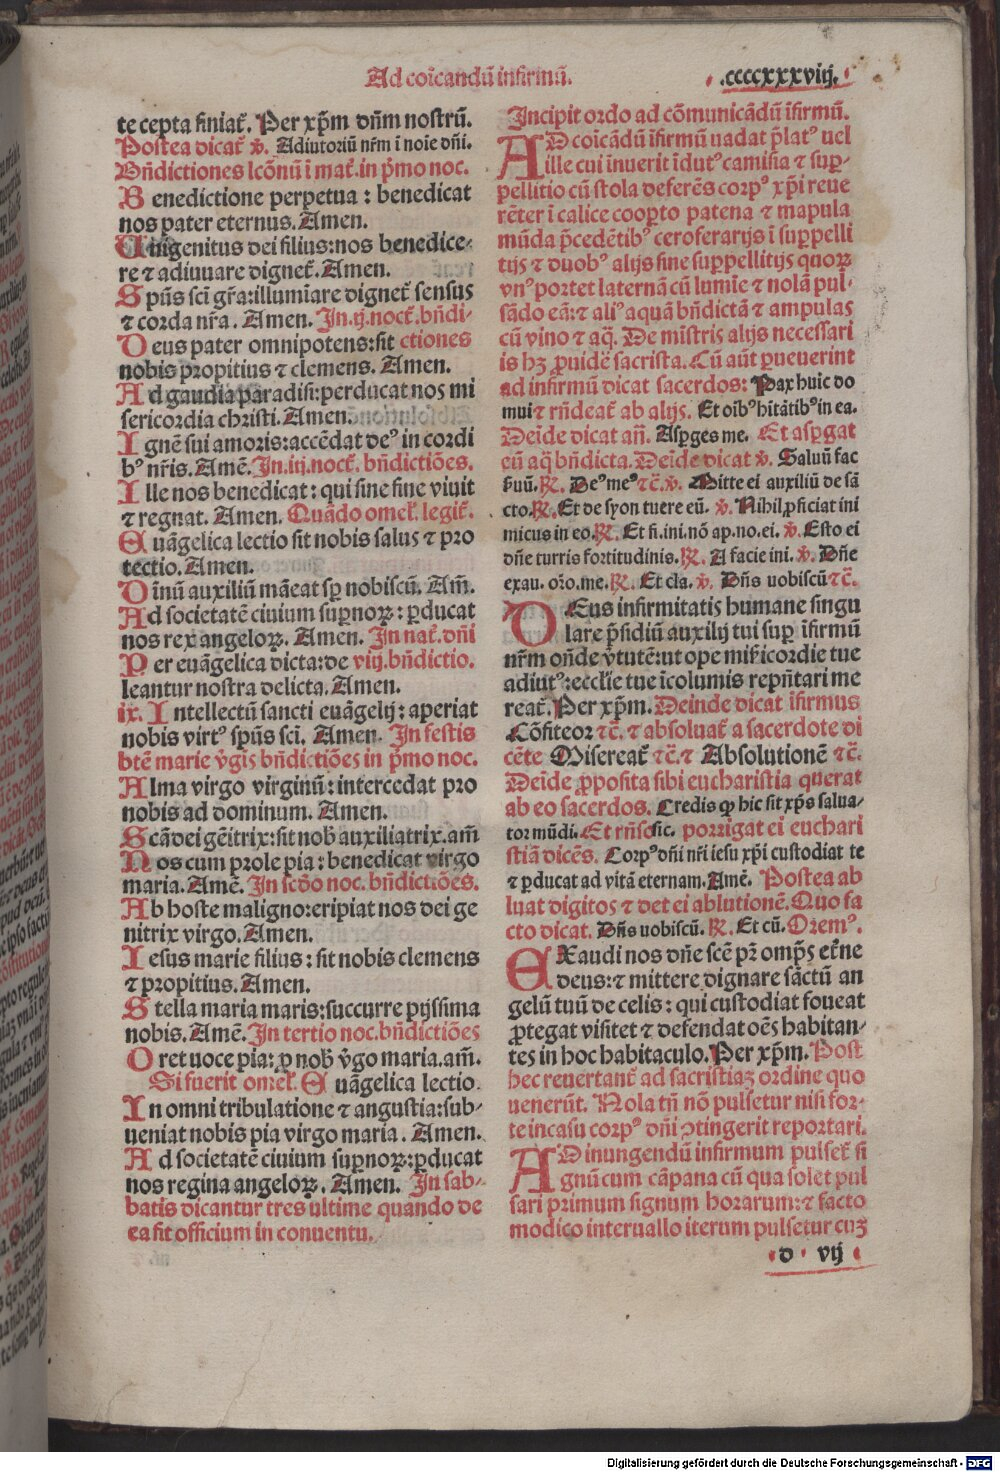 Ad coīcandū infirmū.
.ccccxxxviij.
te cepta finiat̄. Per xp̄m dn̄m nostrū.
Postea dicat̄ v̄. Adiutoriū nr̄m ī noīe dn̄i.
Bn̄dictiones lc̄onū ī mat̄. in p̄mo noc.
Benedictione perpetua : benedicat
nos pater eternus. Amen.
Unigenitus dei filius: nos benedice-
re ⁊ adiuuare dignet̄. Amen.
Spūs scī gr̄a: illumīare dignet̄ sensus
⁊ corda nr̄a. Amen. In .ij. noct̄. bn̄di-
Deus pater omnipotens: sit ctiones
nobis propitius ⁊ clemens. Amen.
Ad gaudia paradisi: perducat nos mi
sericordia christi. Amen.
Ignē sui amoris: accēdat deꝰ in cordi
bꝰ nr̄is. Amē. In .iij. noct̄. bn̄dictiōes.
Ille nos benedicat : qui sine fine viuit
⁊ regnat. Amen. Quādo omel̄. legit̄.
Euāgelica lectio sit nobis salus ⁊ pro
tectio. Amen.
Diuinū auxiliū māeat sꝑ nobiscū. Am̄.
Ad societatē ciuium suꝑnoꝝ: ꝑducat
nos rex angeloꝝ. Amen. In nat̄. dn̄i
Per euāgelica dicta: de viij. bn̄dictio.
leantur nostra delicta. Amen.
ix. Intellectū sancti euāgelij: aperiat
nobis virtꝰ spūs scī. Amen. In festis
btē marie v̄gīs bn̄dictiōes in p̄mo noc.
Alma virgo virginū: intercedat pro
nobis ad dominum. Amen.
Scā dei gēitrix: sit nob̄ auxiliatrix. am̄
Nos cum prole pia : benedicat virgo
maria. Amē. In sc̄do noc. bn̄dictiōes.
Ab hoste maligno: eripiat nos dei ge
nitrix virgo. Amen.
Iesus marie filius : sit nobis clemens
⁊ propitius. Amen.
Stella maria maris: succurre pijssima
nobis. Amē. In tertio noc. bn̄dictiōes
Oret uoce pia: ꝓ nob̄ v̄go maria. am̄.
Si fuerit omel̄. Euāgelica lectio.
In omni tribulatione ⁊ angustia: sub-
ueniat nobis pia virgo maria. Amen.
Ad societatē ciuium suꝑnoꝝ: ꝑducat
nos regina angeloꝝ. Amen. In sab-
batis dicantur tres ultime quando de
ea fit officium in conuentu.
Incipit ordo ad cōmunicādū īfirmū.
AD coīcādū īfirmū uadat p̄latꝰ uel
ille cui īnuerit īdutꝰ camisia ⁊ suꝑ-
pellitio cū stola deferēs corpꝰ xp̄i reue
rēter ī calice coopto patena ⁊ mapula
mūda p̄cedētibꝰ ceroferarijs ī suꝑpelli
tijs ⁊ duobꝰ alijs sine suꝑpellitijs quoꝝ
vnꝰ portet laternā cū lumīe ⁊ nolā pul-
sādo eā: ⁊ aliꝰ aquā bn̄dictā ⁊ ampulas
cū vino ⁊ aq̄. De mīstris alijs necessari
is hꝫ ꝓuidē sacrista. Cū aūt ꝑueuerint
ad infirmū dicat sacerdos: Pax huic do
mui ⁊ rn̄deat̄ ab alijs. Et oībꝰ hītātibꝰ in ea.
Deīde dicat an̄. Asꝑges me. Et asꝑgat
eū aq̄ bn̄dicta. Deīde dicat v̄. Saluū fac
ẜuū. ℟. Deꝰ meꝰ ⁊c̄. v̄. Mitte ei auxiliū de sā
cto. ℟. Et de syon tuere eū. v̄. Nihil ꝓficiat ini
micus in eo. ℟. Et fi. ini. nō ap. no. ei. v̄. Esto ei
dn̄e turris fortitudinis. ℟. A facie ini. v̄. Dn̄e
exau. oȓo. me. ℟. Et cla. v̄. Dn̄s uobiscū ⁊c̄.
DEus infirmitatis humane singu
lare p̄sidiū auxilij tui suꝑ īfirmū
nr̄m on̄de v̄tutē: ut ope mīs̄icordie tue
adiutꝰ: eccl̄ie tue īcolumis repn̄tari me
reat̄. Per xp̄m. Deinde dicat īfirmus
Cōfiteor ⁊c̄. ⁊ absoluat̄ a sacerdote di
cēte Misereat̄ ⁊c̄. ⁊ Absolutionē ⁊c̄.
Deīde ꝓposita sibi eucharistia querat
ab eo sacerdos. Credis ꝙ hic sit xp̄s salua-
tor mūdi. Et rn̄so sic. porrigat ei euchari
stiā dicēs. Corpꝰ dn̄i nr̄i iesu xp̄i custodiat te
⁊ ꝑducat ad vitā eternam. Amē. Postea ab
luat digitos ⁊ det ei ablutionē. Quo fa
cto dicat. Dn̄s uobiscū. ℟. Et cū. Oremꝰ.
EXaudi nos dn̄e scē pr̄ omp̄s et̄ne
deus: ⁊ mittere dignare sāctū an
gelū tuū de celis : qui custodiat foueat
ꝓtegat visitet ⁊ defendat oēs habitan-
tes in hoc habitaculo. Per xp̄m. Post
hec reuertant̄ ad sacristiaꝫ ordine quo
uenerūt. Nola tn̄ nō pulsetur nisi for-
te in casu corpꝰ dn̄i ↄtingerit reportari.
AD inungendū infirmum pulset̄ si
gnū cum cāpana cū qua solet pul
sari primum signum horarum: ⁊ facto
modico interuallo iterum pulsetur cuꝫ
d vij
Digitalisierung gefördert durch die Deutsche Forschungsgemeinschaft - DFG